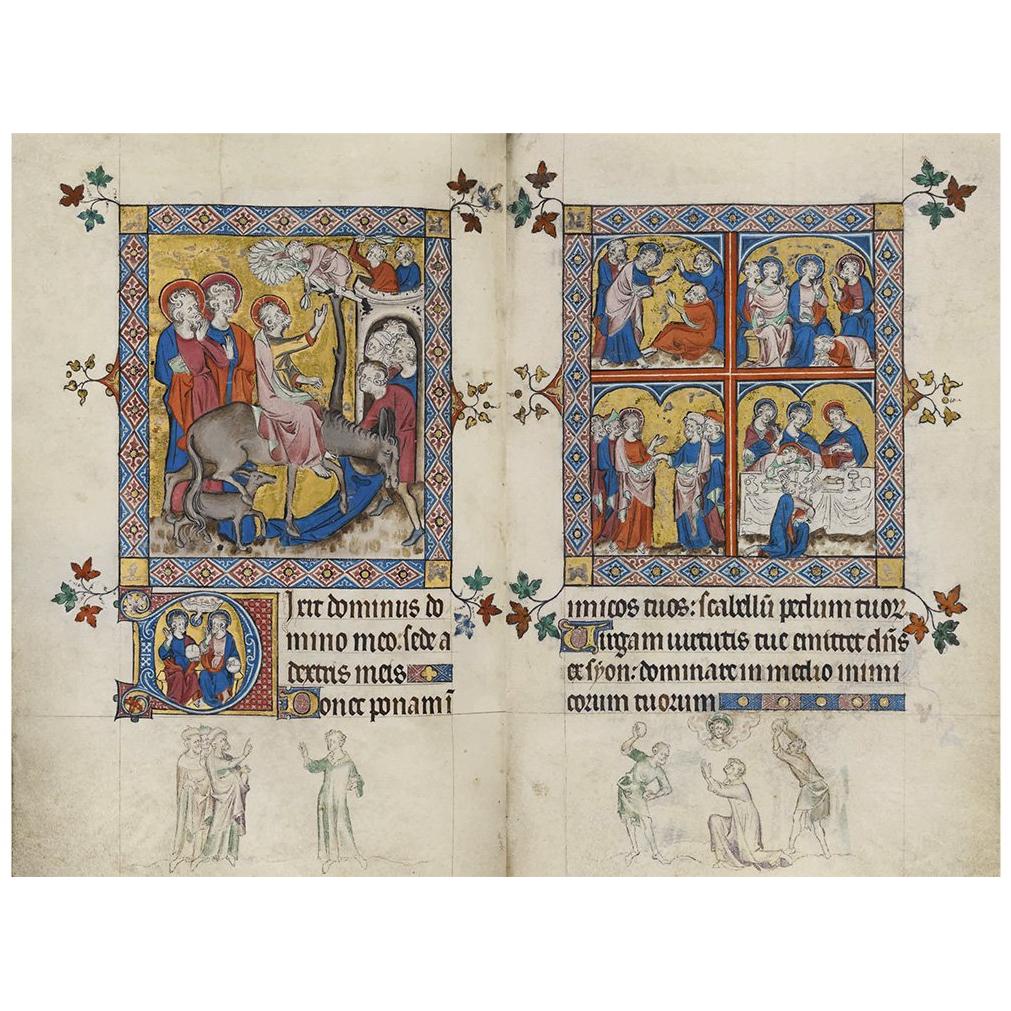 Dixit dominus do
mino meo: sede a
dextris meis
Donec ponam i
imicos tuos: scabellū pedum tuor
Uirgam uirtutis tue emittet dn̄s
ex syon: dominare in medio inimi
corum tuorum